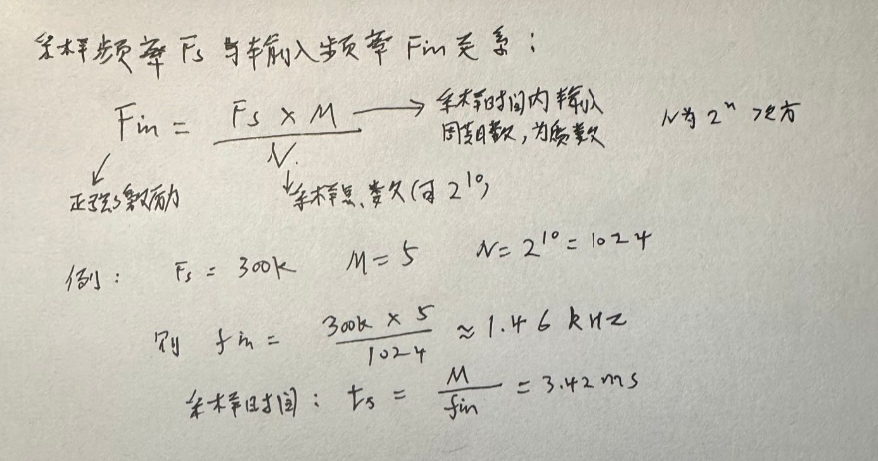 采样频率 Fs 与输入频率 Fin 关系:
Fin = Fs × M / N. → 采样时间内输入周期数,为质数 N为 2ⁿ 次方
正弦激励 采样点数(可 2¹⁰)
例: Fs = 300k M = 5 N = 2¹⁰ = 1024
则 fin = 300k × 5 / 1024 ≈ 1.46 kHZ
采样时间: ts = M / fin = 3.42 ms